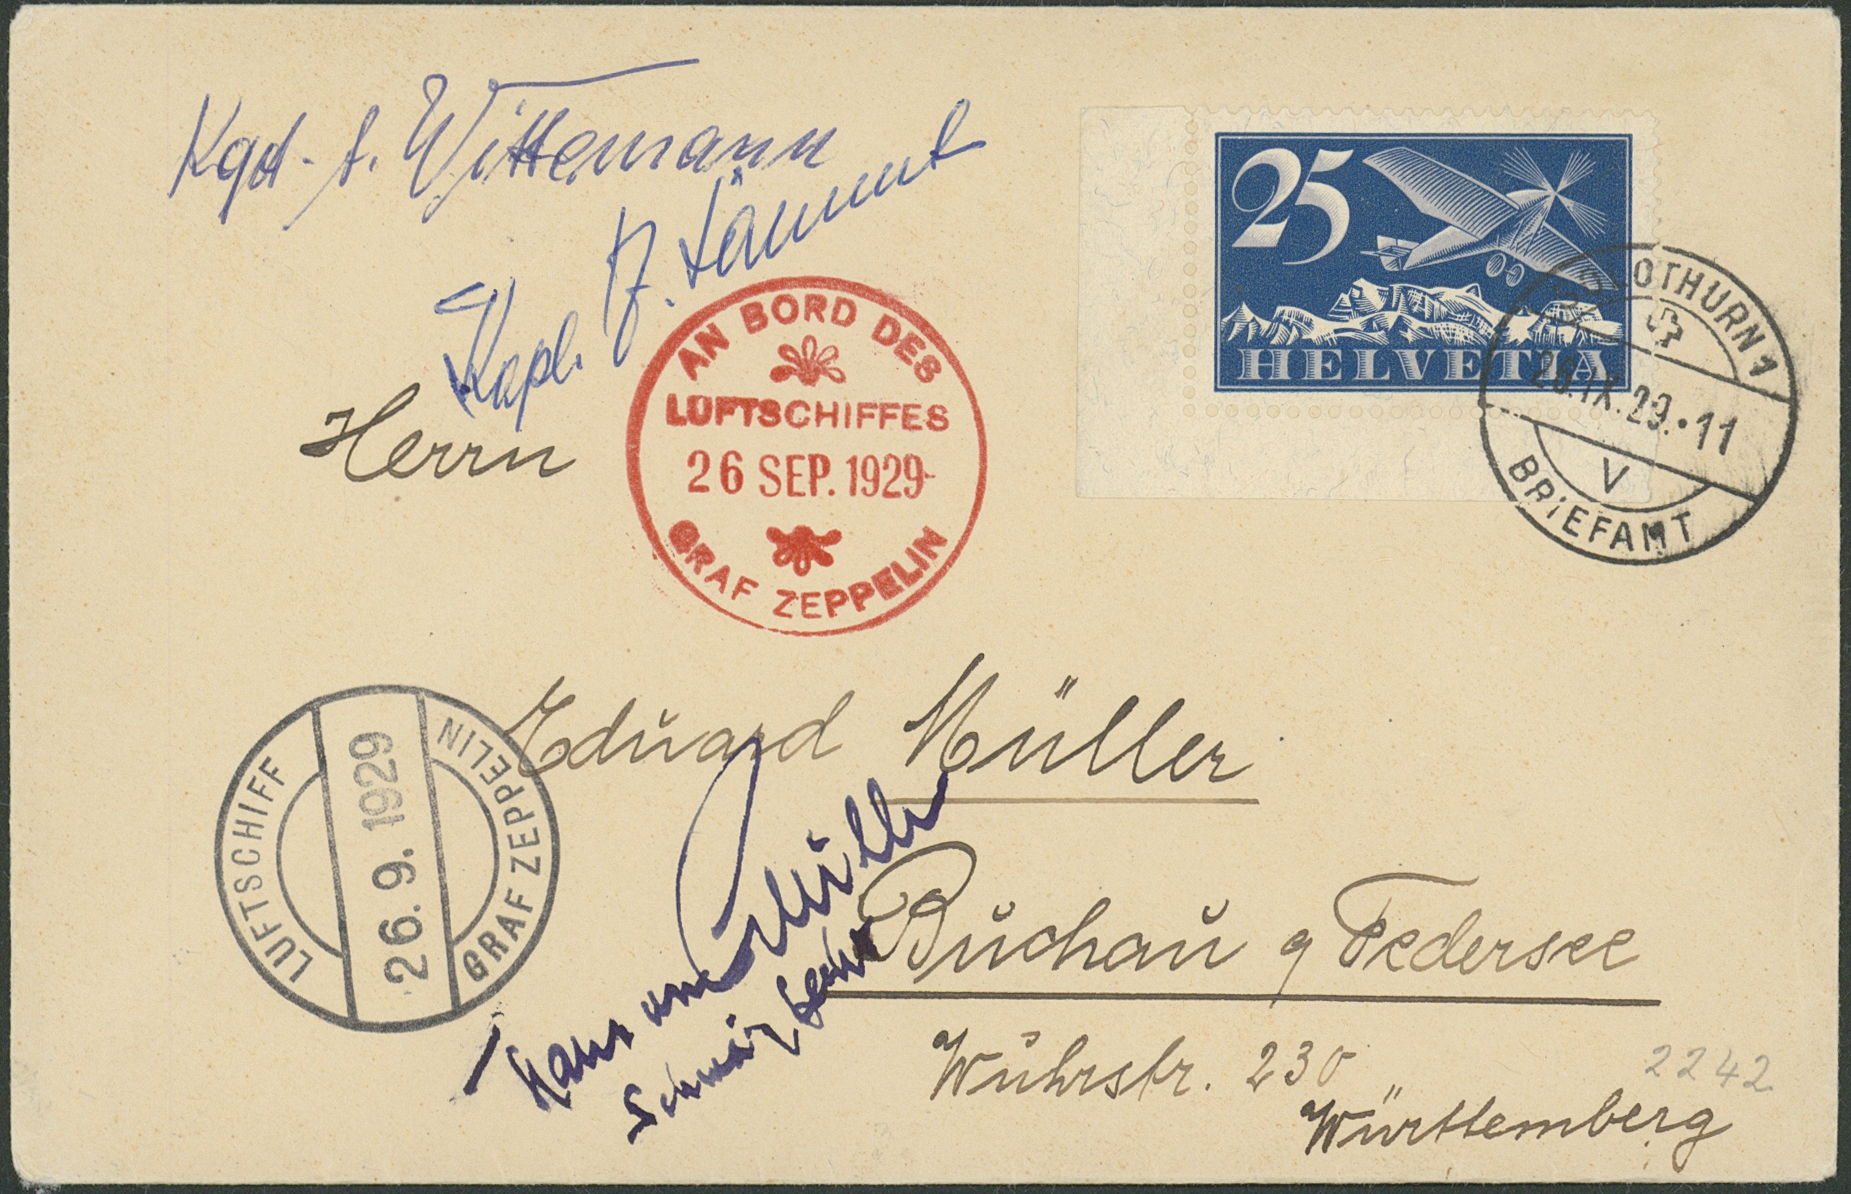 Kgd. A. Wittemann
Kapl.
25
HELVETIA
SOLOTHURN 1
26.IX.29.•11
V
BRIEFAMT
AN BORD DES
LUFTSCHIFFES
26 SEP. 1929
GRAF ZEPPELIN
Herrn
Eduard Müller
LUFTSCHIFF
26.9.1929
GRAF ZEPPELIN
Hans von
Buchau a Federsee
Wuhrstr. 230
2242
Württemberg